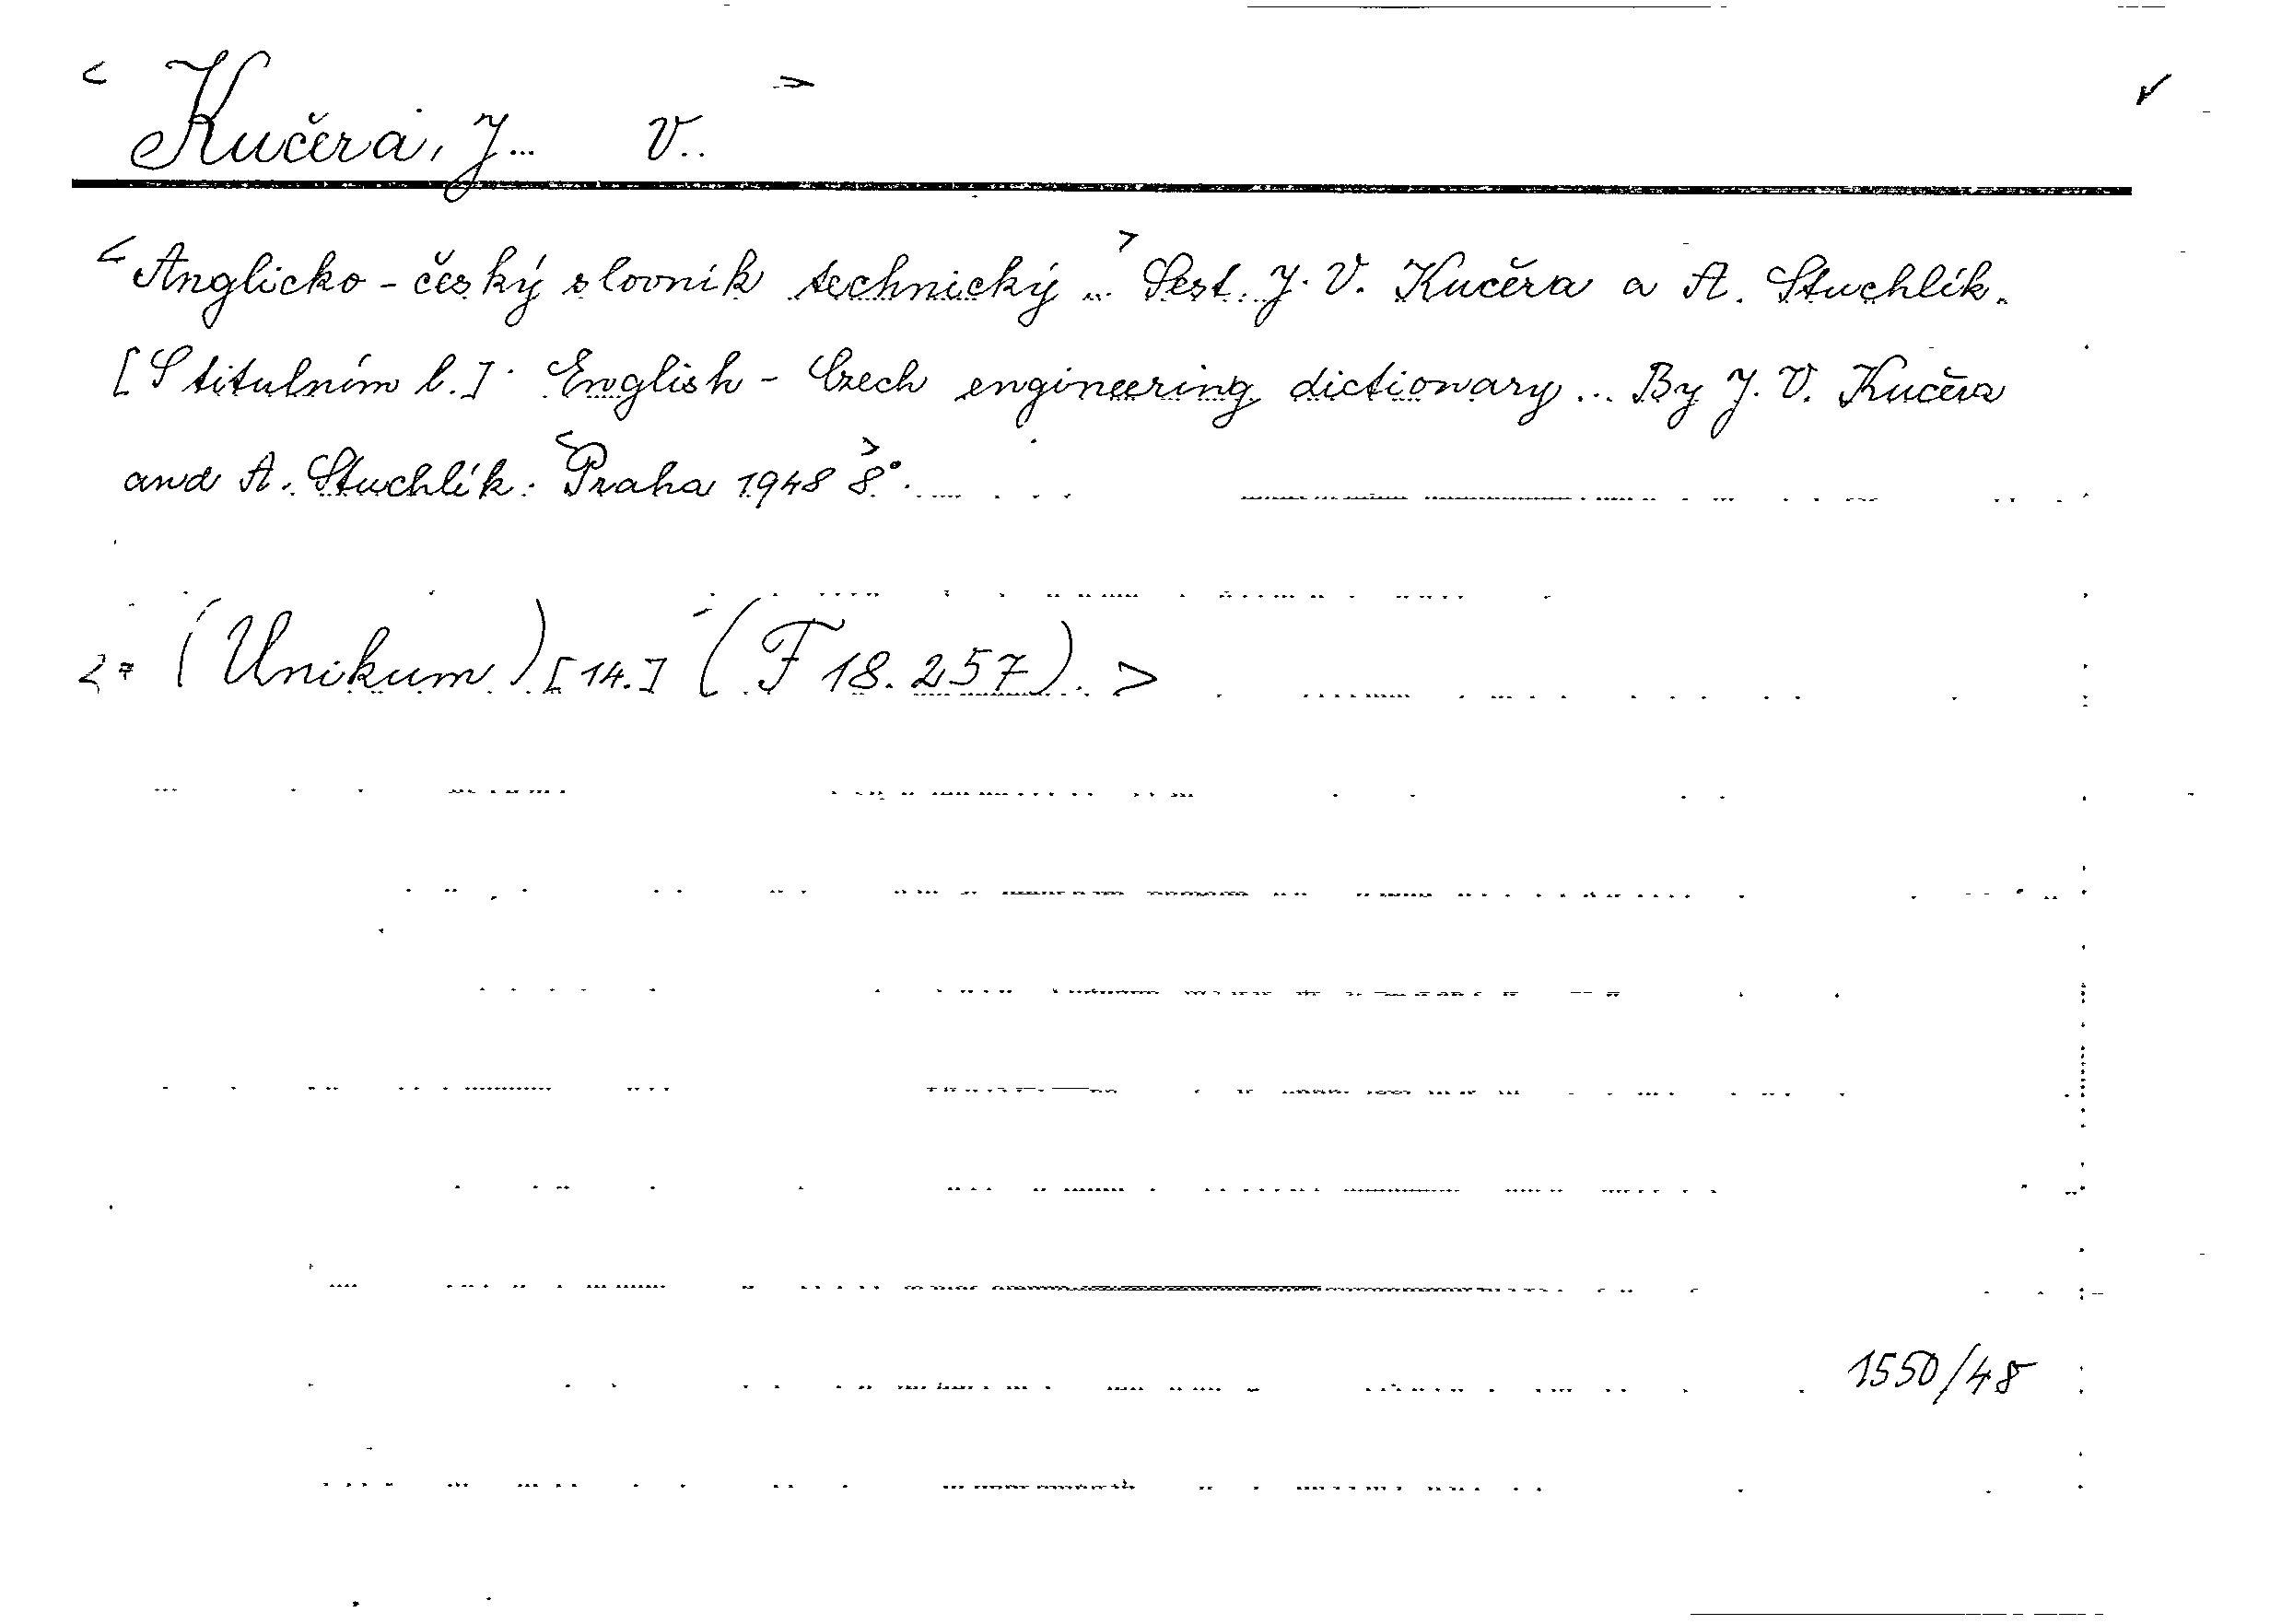 < Kučera, J... V.. >
< Anglicko-český slovník technický ... > Sest. J. V. Kučera a A. Stuchlík.
[S titulním l.]: English-Czech engineering dictionary... By J. V. Kučera
and A. Stuchlík. < Praha 1948 > 8°.
<= (Unikum) [14.] (F 18.257). >
1550/48